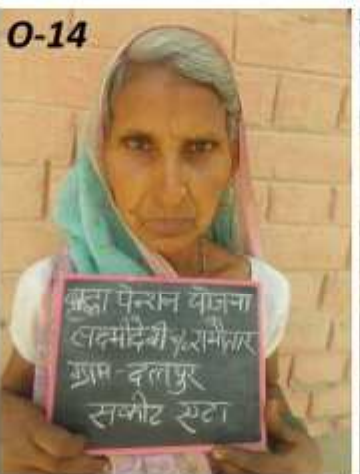 O-14
बृद्धा पेन्शन योजना
लक्ष्मीदेवी %रामौतार
ग्राम-दलपुर
सकीट एटा